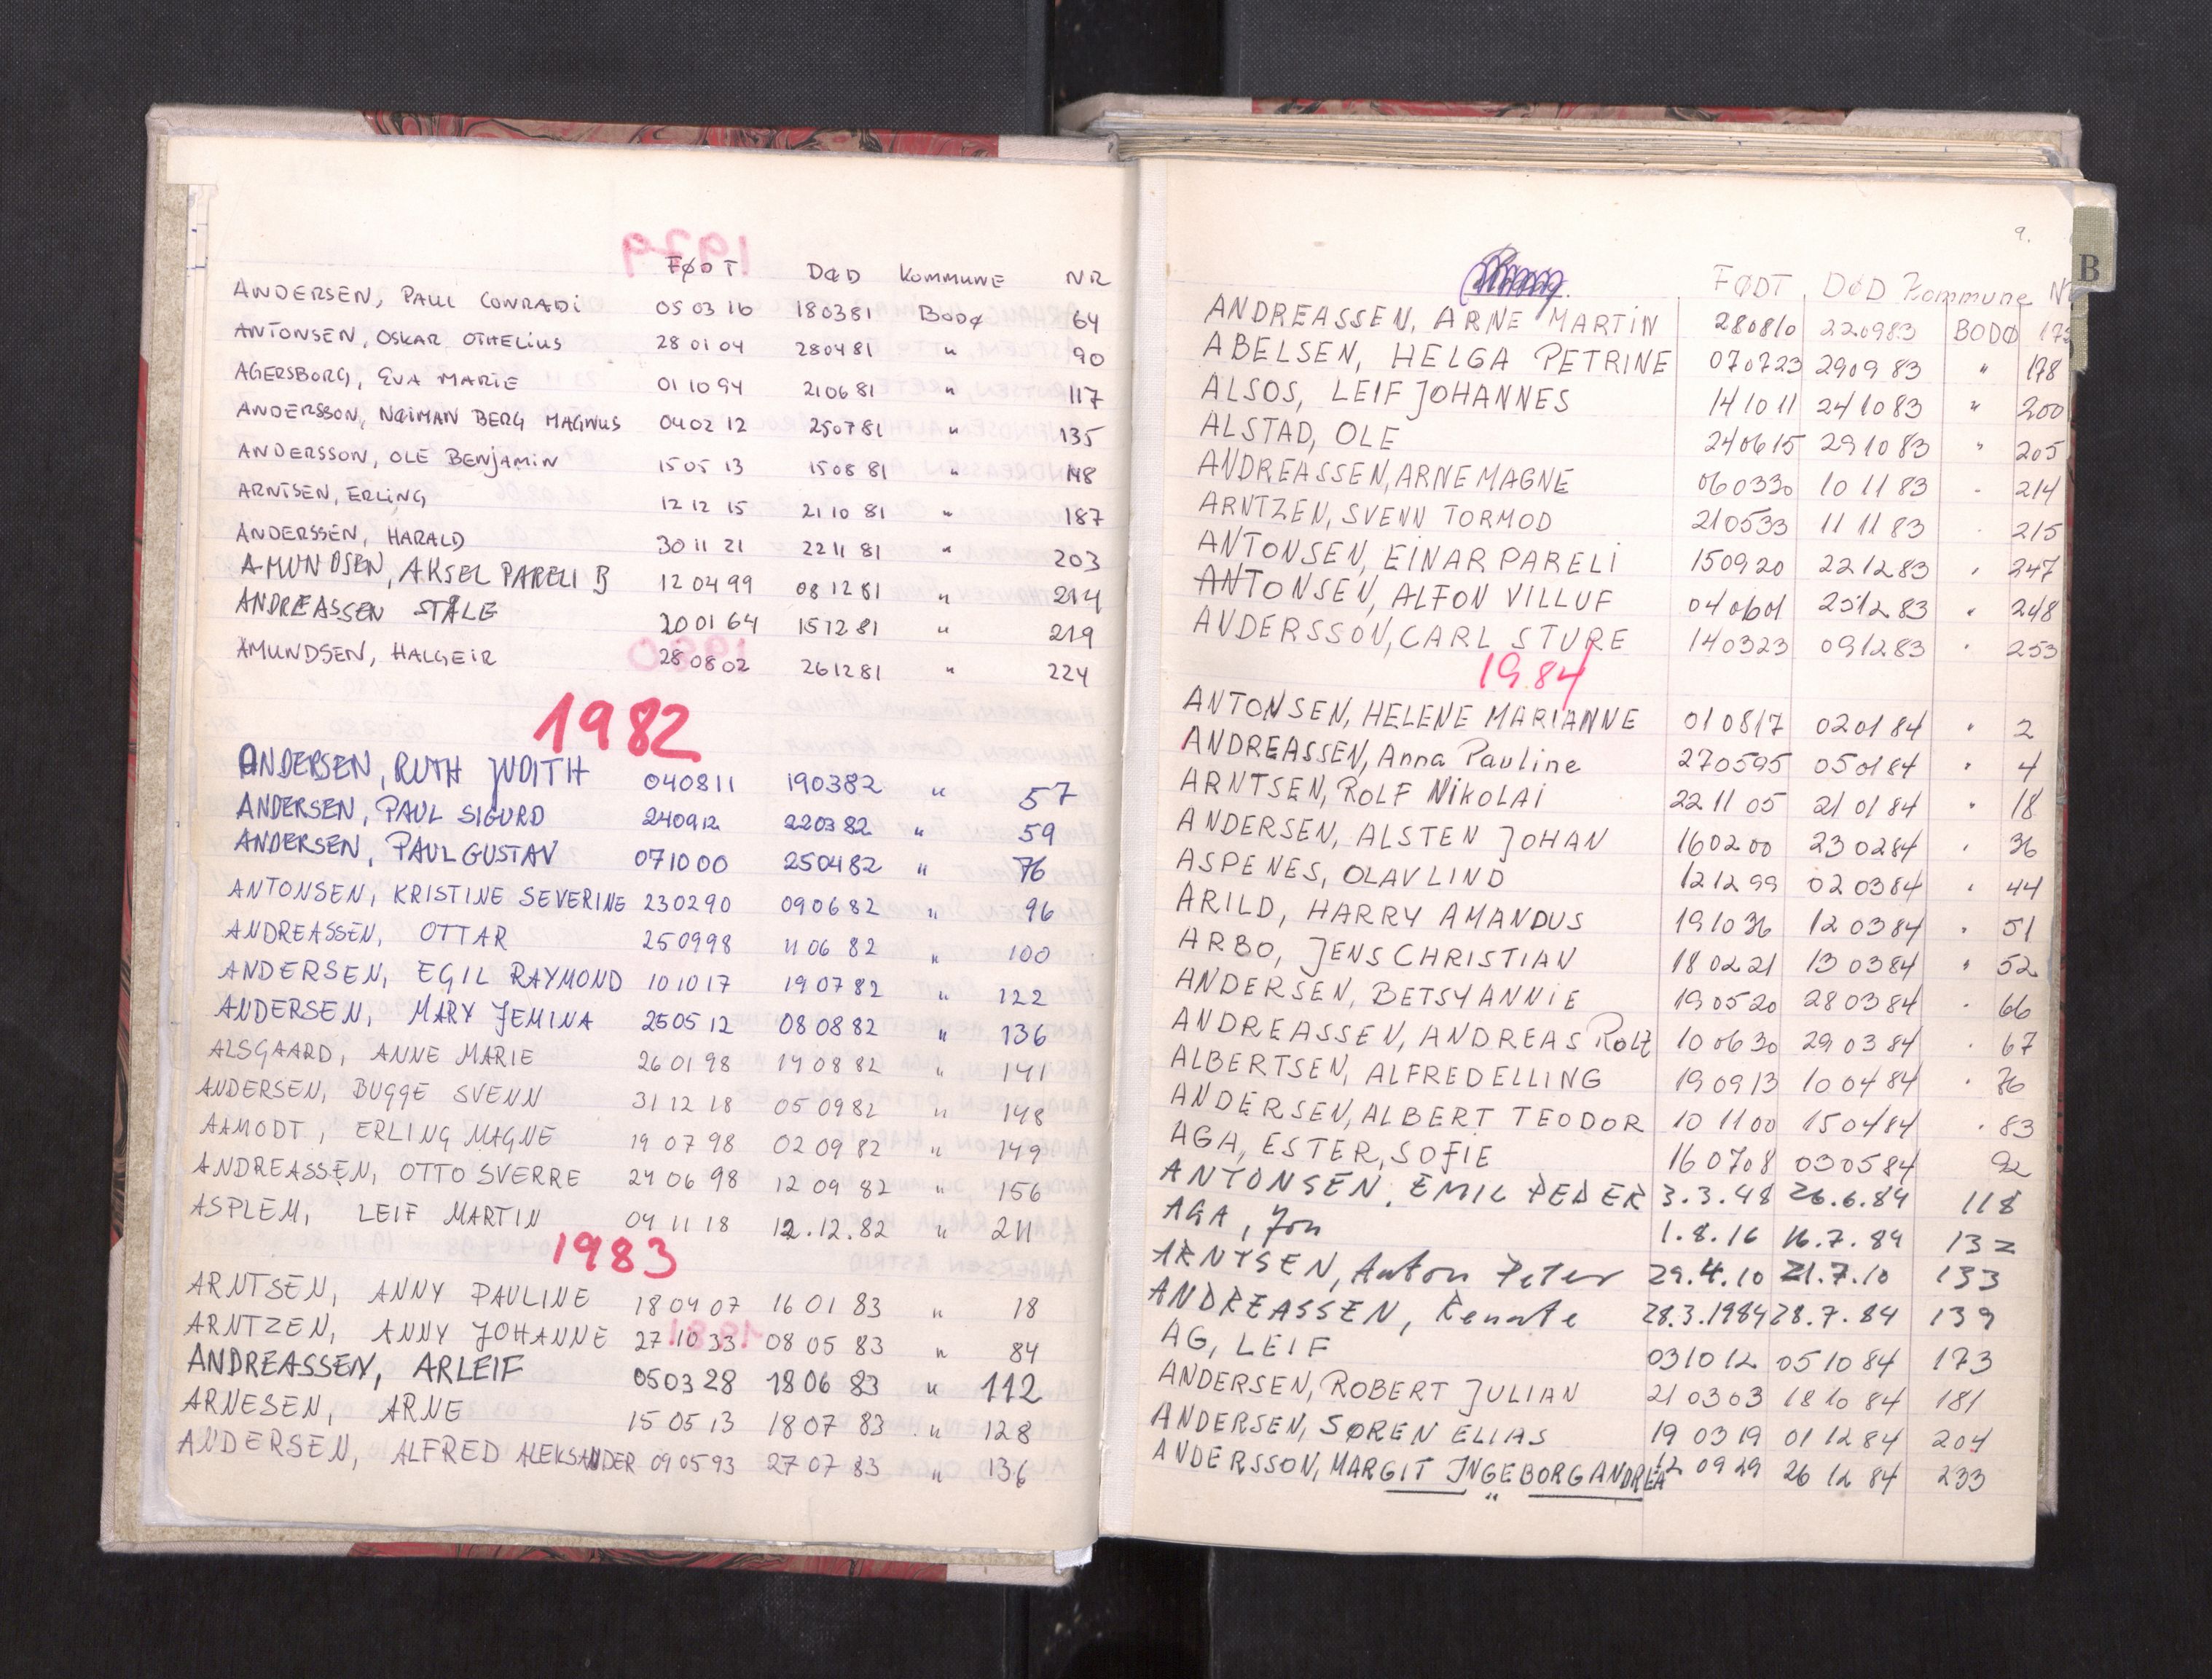 FØDT DØD KOMMUNE NR
ANDERSEN, PAUL CONRADI 05 03 16 180381 BODØ 64
ANTONSEN, OSKAR OTHELIUS 28 01 04 280481 " 90
AGERSBORG, EVA MARIE 01 10 94 210681 " 117
ANDERSSON, NEIMAN BERG MAGNUS 04 02 12 250781 " 135
ANDERSSON, OLE BENJAMIN 15 05 13 15 08 81 " 148
ARNTSEN, ERLING 12 12 15 21 10 81 " 187
ANDERSSEN, HARALD 30 11 21 22 11 81 " 203
AMUNDSEN, AKSEL PARELI B 12 04 99 08 12 81 " 214
ANDREASSEN STÅLE 20 01 64 15 12 81 " 219
AMUNDSEN, HALGEIR 28 08 02 26 12 81 " 224
1982
ANDERSEN, RUTH JUDITH 040811 190382 " 57
ANDERSEN, PAUL SIGURD 240912 220382 " 59
ANDERSEN, PAUL GUSTAV 071000 250482 " 76
ANTONSEN, KRISTINE SEVERINE 230290 090682 " 96
ANDREASSEN, OTTAR 250998 11 06 82 " 100
ANDERSEN, EGIL RAYMOND 10 10 17 19 07 82 " 122
ANDERSEN, MARY JEMINA 25 05 12 08 08 82 " 136
ALSGAARD, ANNE MARIE 26 01 98 14 08 82 " 141
ANDERSEN, BUGGE SVENN 31 12 18 05 09 82 " 148
AAMODT, ERLING MAGNE 19 07 98 02 09 82 " 149
ANDREASSEN, OTTO SVERRE 24 06 98 12 09 82 " 156
ASPLEM, LEIF MARTIN 04 11 18 12.12.82 " 211
1983
ARNTSEN, ANNY PAULINE 18 04 07 16 01 83 " 18
ARNTZEN, ANNY JOHANNE 27 10 33 08 05 83 " 84
ANDREASSEN, ARLEIF 05 03 28 18 06 83 " 112
ARNESEN, ARNE 15 05 13 18 07 83 " 128
ANDERSEN, ALFRED ALEKSANDER 09 05 93 27 07 83 " 136
9.
FØDT DØD Kommune
ANDREASSEN, ARNE MARTIN 280810 220983 BODØ
ABELSEN, HELGA PETRINE 070723 290983 " 178
ALSOS, LEIF JOHANNES 141011 241083 " 200
ALSTAD, OLE 240615 291083 " 205
ANDREASSEN, ARNE MAGNE 060330 10 11 83 " 214
ARNTZEN, SVENN TORMOD 210533 11 11 83 " 215
ANTONSEN, EINAR PARELI 150920 221283 " 247
ANTONSEN, ALFON VILLUF 040601 251283 " 248
ANDERSSON, CARL STURE 140323 091283 " 253
1984
ANTONSEN, HELENE MARIANNE 010817 020184 " 2
ANDREASSEN, Anna Pauline 270595 050184 " 4
ARNTSEN, ROLF NIKOLAI 22 11 05 21 01 84 " 18
ANDERSEN, ALSTEN JOHAN 160200 230284 " 36
ASPENES, OLAV LIND 121299 020384 " 44
ARILD, HARRY AMANDUS 191036 120384 " 51
ARBO, JENS CHRISTIAN 180221 130384 " 52
ANDERSEN, BETSY ANNIE 190520 280384 " 66
ANDREASSEN, ANDREAS Rolf 100630 290384 " 67
ALBERTSEN, ALFRED ELLING 190913 100484 " 76
ANDERSEN, ALBERT TEODOR 10 11 00 150484 " 83
AGA, ESTER, SOFIE 160708 030584 92
ANTONSEN, EMIL PEDER 3.3.48 26.6.84 118
AGA, Jon 1.8.16 16.7.84 132
ARNTSEN, Anton Peter 29.4.10 21.7.10 133
ANDREASSEN, Renate 28.3.1984 28.7.84 139
AG, LEIF 031012 051084 173
ANDERSEN, ROBERT JULIAN 21 03 03 18 10 84 181
ANDERSEN, SØREN ELIAS 19 03 19 01 12 84 204
ANDERSSON, MARGIT INGEBORG ANDREA 12 09 29 26 12 84 233
"
B